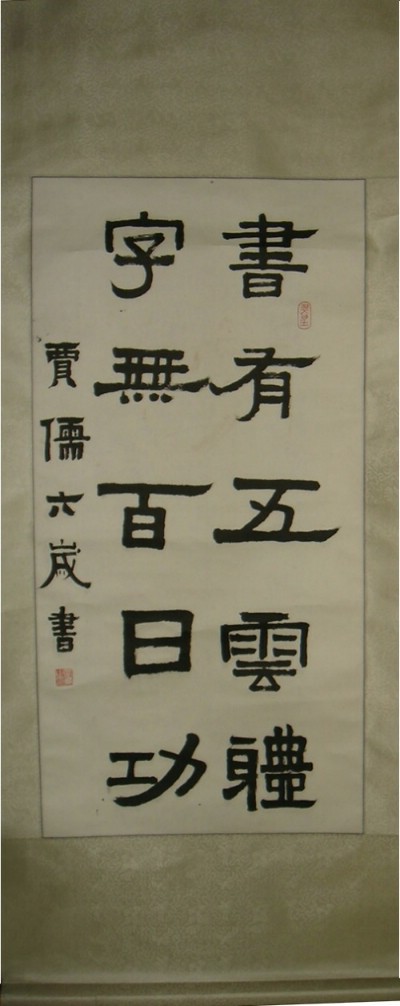 書有五雲體
字無百日功
賈儒六歲書